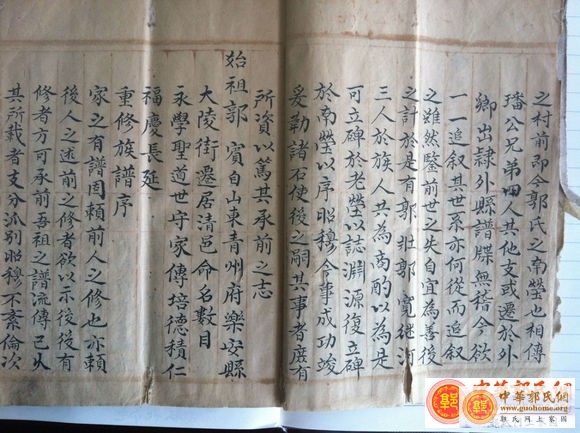 之村前即今郭氏之南塋也相傳
璠公兄弟四人其他支或遷於外
鄉出隸外縣譜牒無稽今欲
一一追叙其世系亦何從而追叙
之雖然鑒前世之失自宜為善後
之計於是有郭壯郭寬継河
三人於族人共為商酌以為是
可立碑於老塋以誌淵源復立碑
於南塋以序昭穆今事成功竣
妥勒諸石使後之嗣其事者庶有
所資以篤其承前之志
始祖郭賓自山東青州府樂安縣
大陵街遷居清邑命名數目
永學聖道世守家傳培德積仁
福慶長延
重修族譜序
家之有譜固頼前人之修也亦頼
後人之述前之修者欲以示後後有
修者方可承前吾祖之譜流傳已久
其所載者支分派別昭穆不紊倫次
中華郭氏網
www.guohome.org
郭氏網上家園